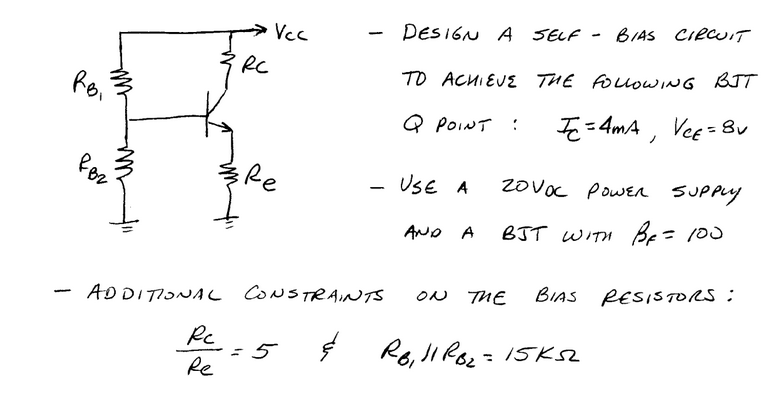 Vcc
Rc
RB1
RB2
Re
- DESIGN A SELF-BIAS CIRCUIT
TO ACHIEVE THE FOLLOWING BJT
Q POINT : IC = 4mA , VCE = 8V
- USE A 20VDC POWER SUPPLY
AND A BJT WITH βF = 100
- ADDITIONAL CONSTRAINTS ON THE BIAS RESISTORS :
Rc/Re = 5 & RB1 || RB2 = 15KΩ